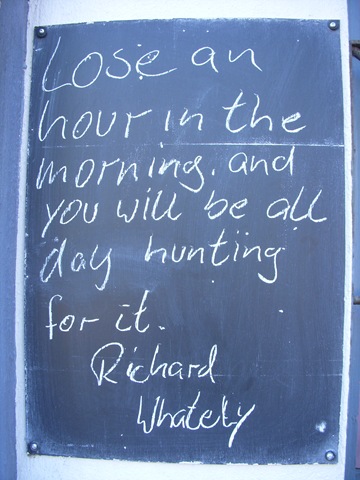 Lose an
hour in the
morning. and
you will be all
day hunting
for it.
Richard
Whately